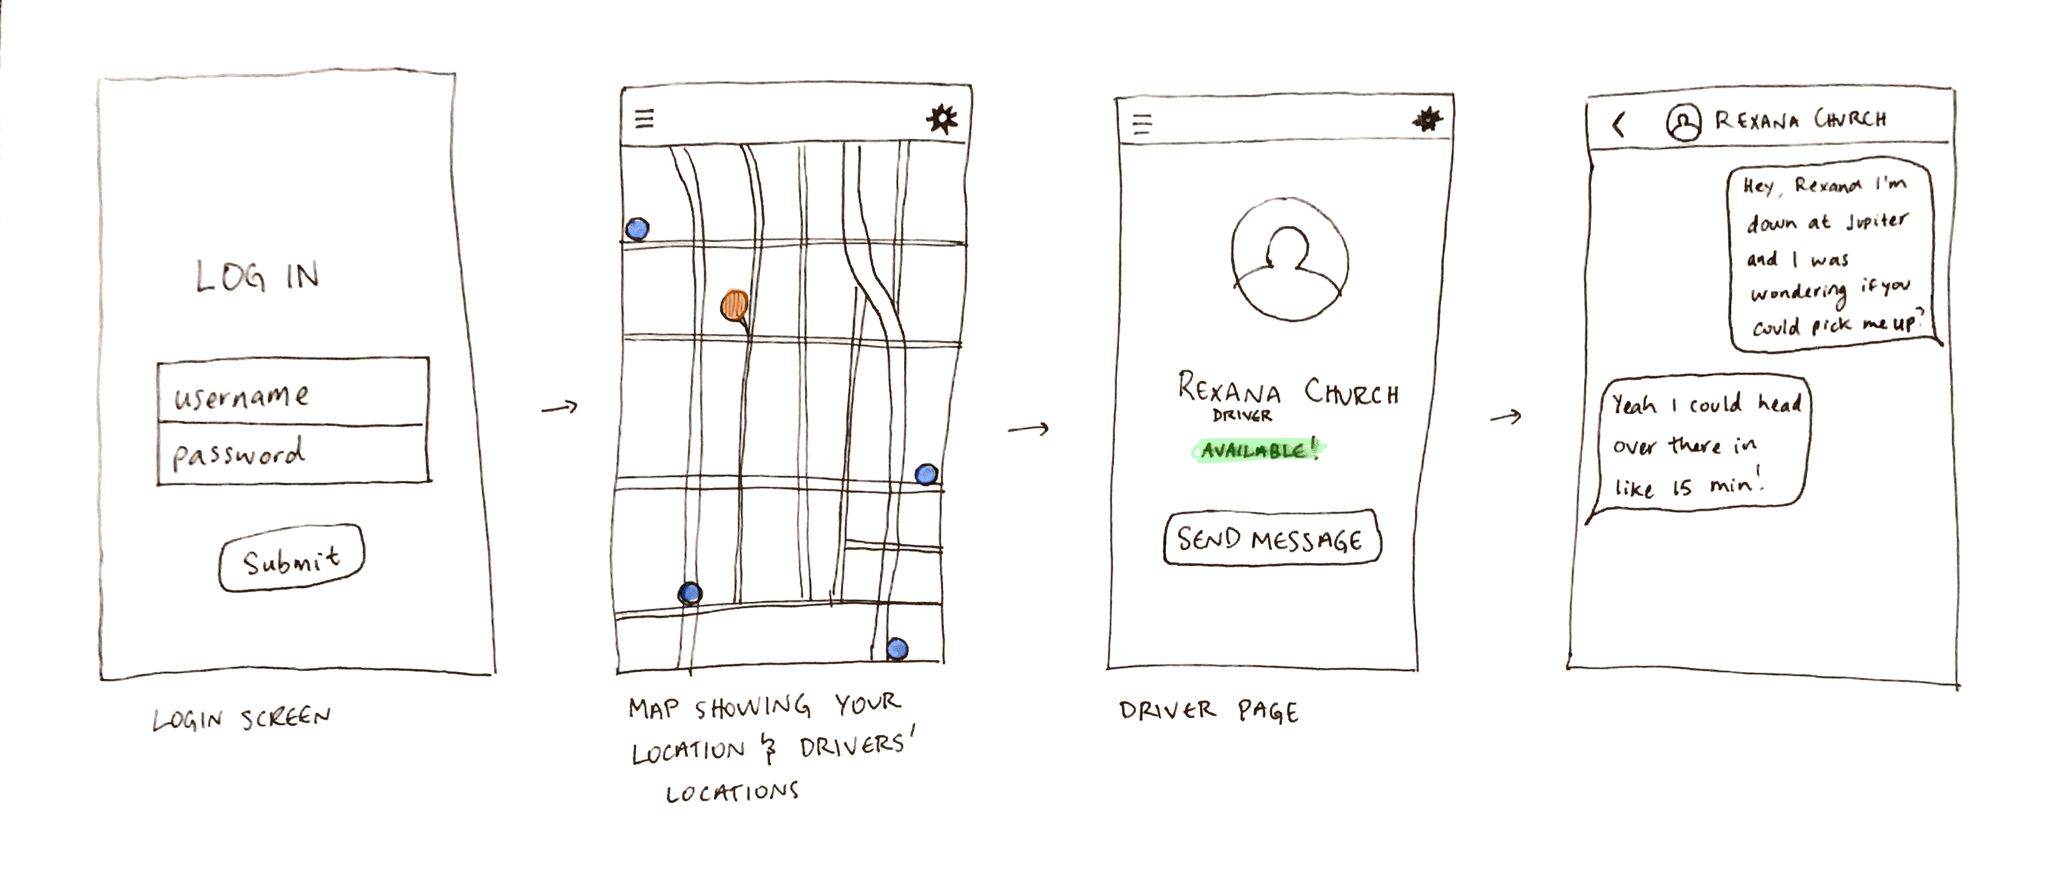 LOG IN
username
password
Submit
LOGIN SCREEN
MAP SHOWING YOUR
LOCATION & DRIVERS'
LOCATIONS
REXANA CHURCH
DRIVER
AVAILABLE!
SEND MESSAGE
DRIVER PAGE
REXANA CHURCH
Hey, Rexana I'm
down at Jupiter
and I was
wondering if you
could pick me up?
Yeah I could head
over there in
like 15 min!